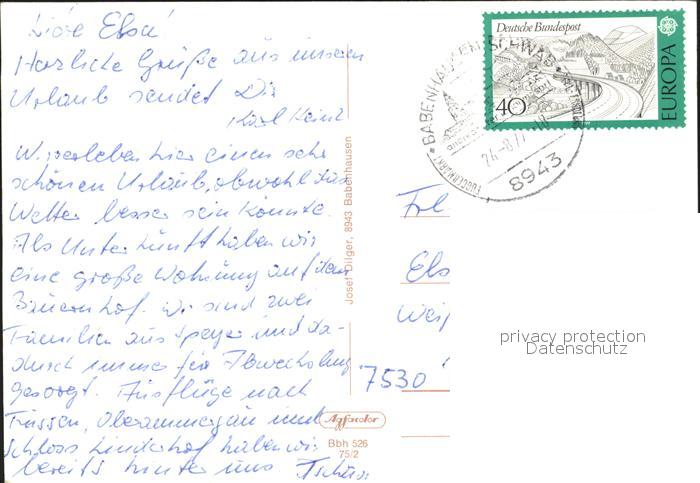 Liebe Elsa!
Herzliche Grüße aus unserem
Urlaub sendet Dir
Karl Heinz
Wir erleben hier einen sehr
schönen Urlaub, obwohl das
Wetter besser sein könnte.
Als Unterkunft haben wir
eine große Wohnung auf dem
Bauernhof. Wir sind zwei
Familien aus Speyer und da-
durch immer für Abwechslung
gesorgt. Ausflüge nach
Füssen, Oberammergau und
Schloss Linderhof haben wir
bereits hinter uns Tschüss
Josef Dilger, 8943 Babenhausen
Agfacolor
Bbh 526
75/2
Deutsche Bundespost
40
EUROPA
BABENHAUSEN SCHWAB
FUGGERMARKT
24.-8.77
8943
Frl
Els
Weiß
7530
privacy protection
Datenschutz